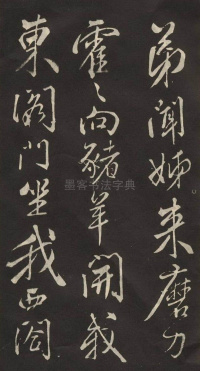 弟聞姊来磨刀
霍〻向豬羊開我
東閣門坐我西閤
墨客书法字典